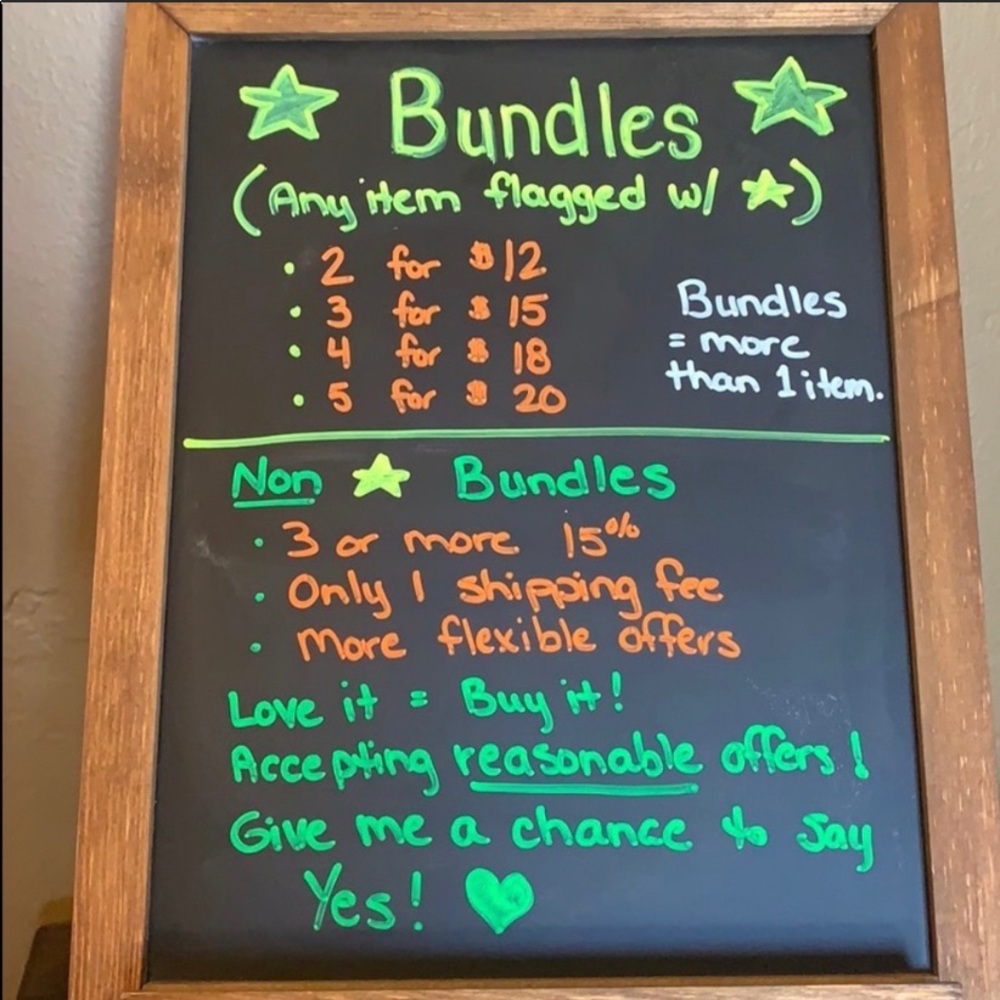 Bundles
(Any item flagged w/ ★)
• 2 for $12
• 3 for $ 15
• 4 for $ 18
• 5 for $ 20
Bundles
= more
than 1 item.
Non ★ Bundles
• 3 or more 15%
• Only 1 shipping fee
• More flexible offers
Love it = Buy it!
Accepting reasonable offers!
Give me a chance to say
Yes! ♥